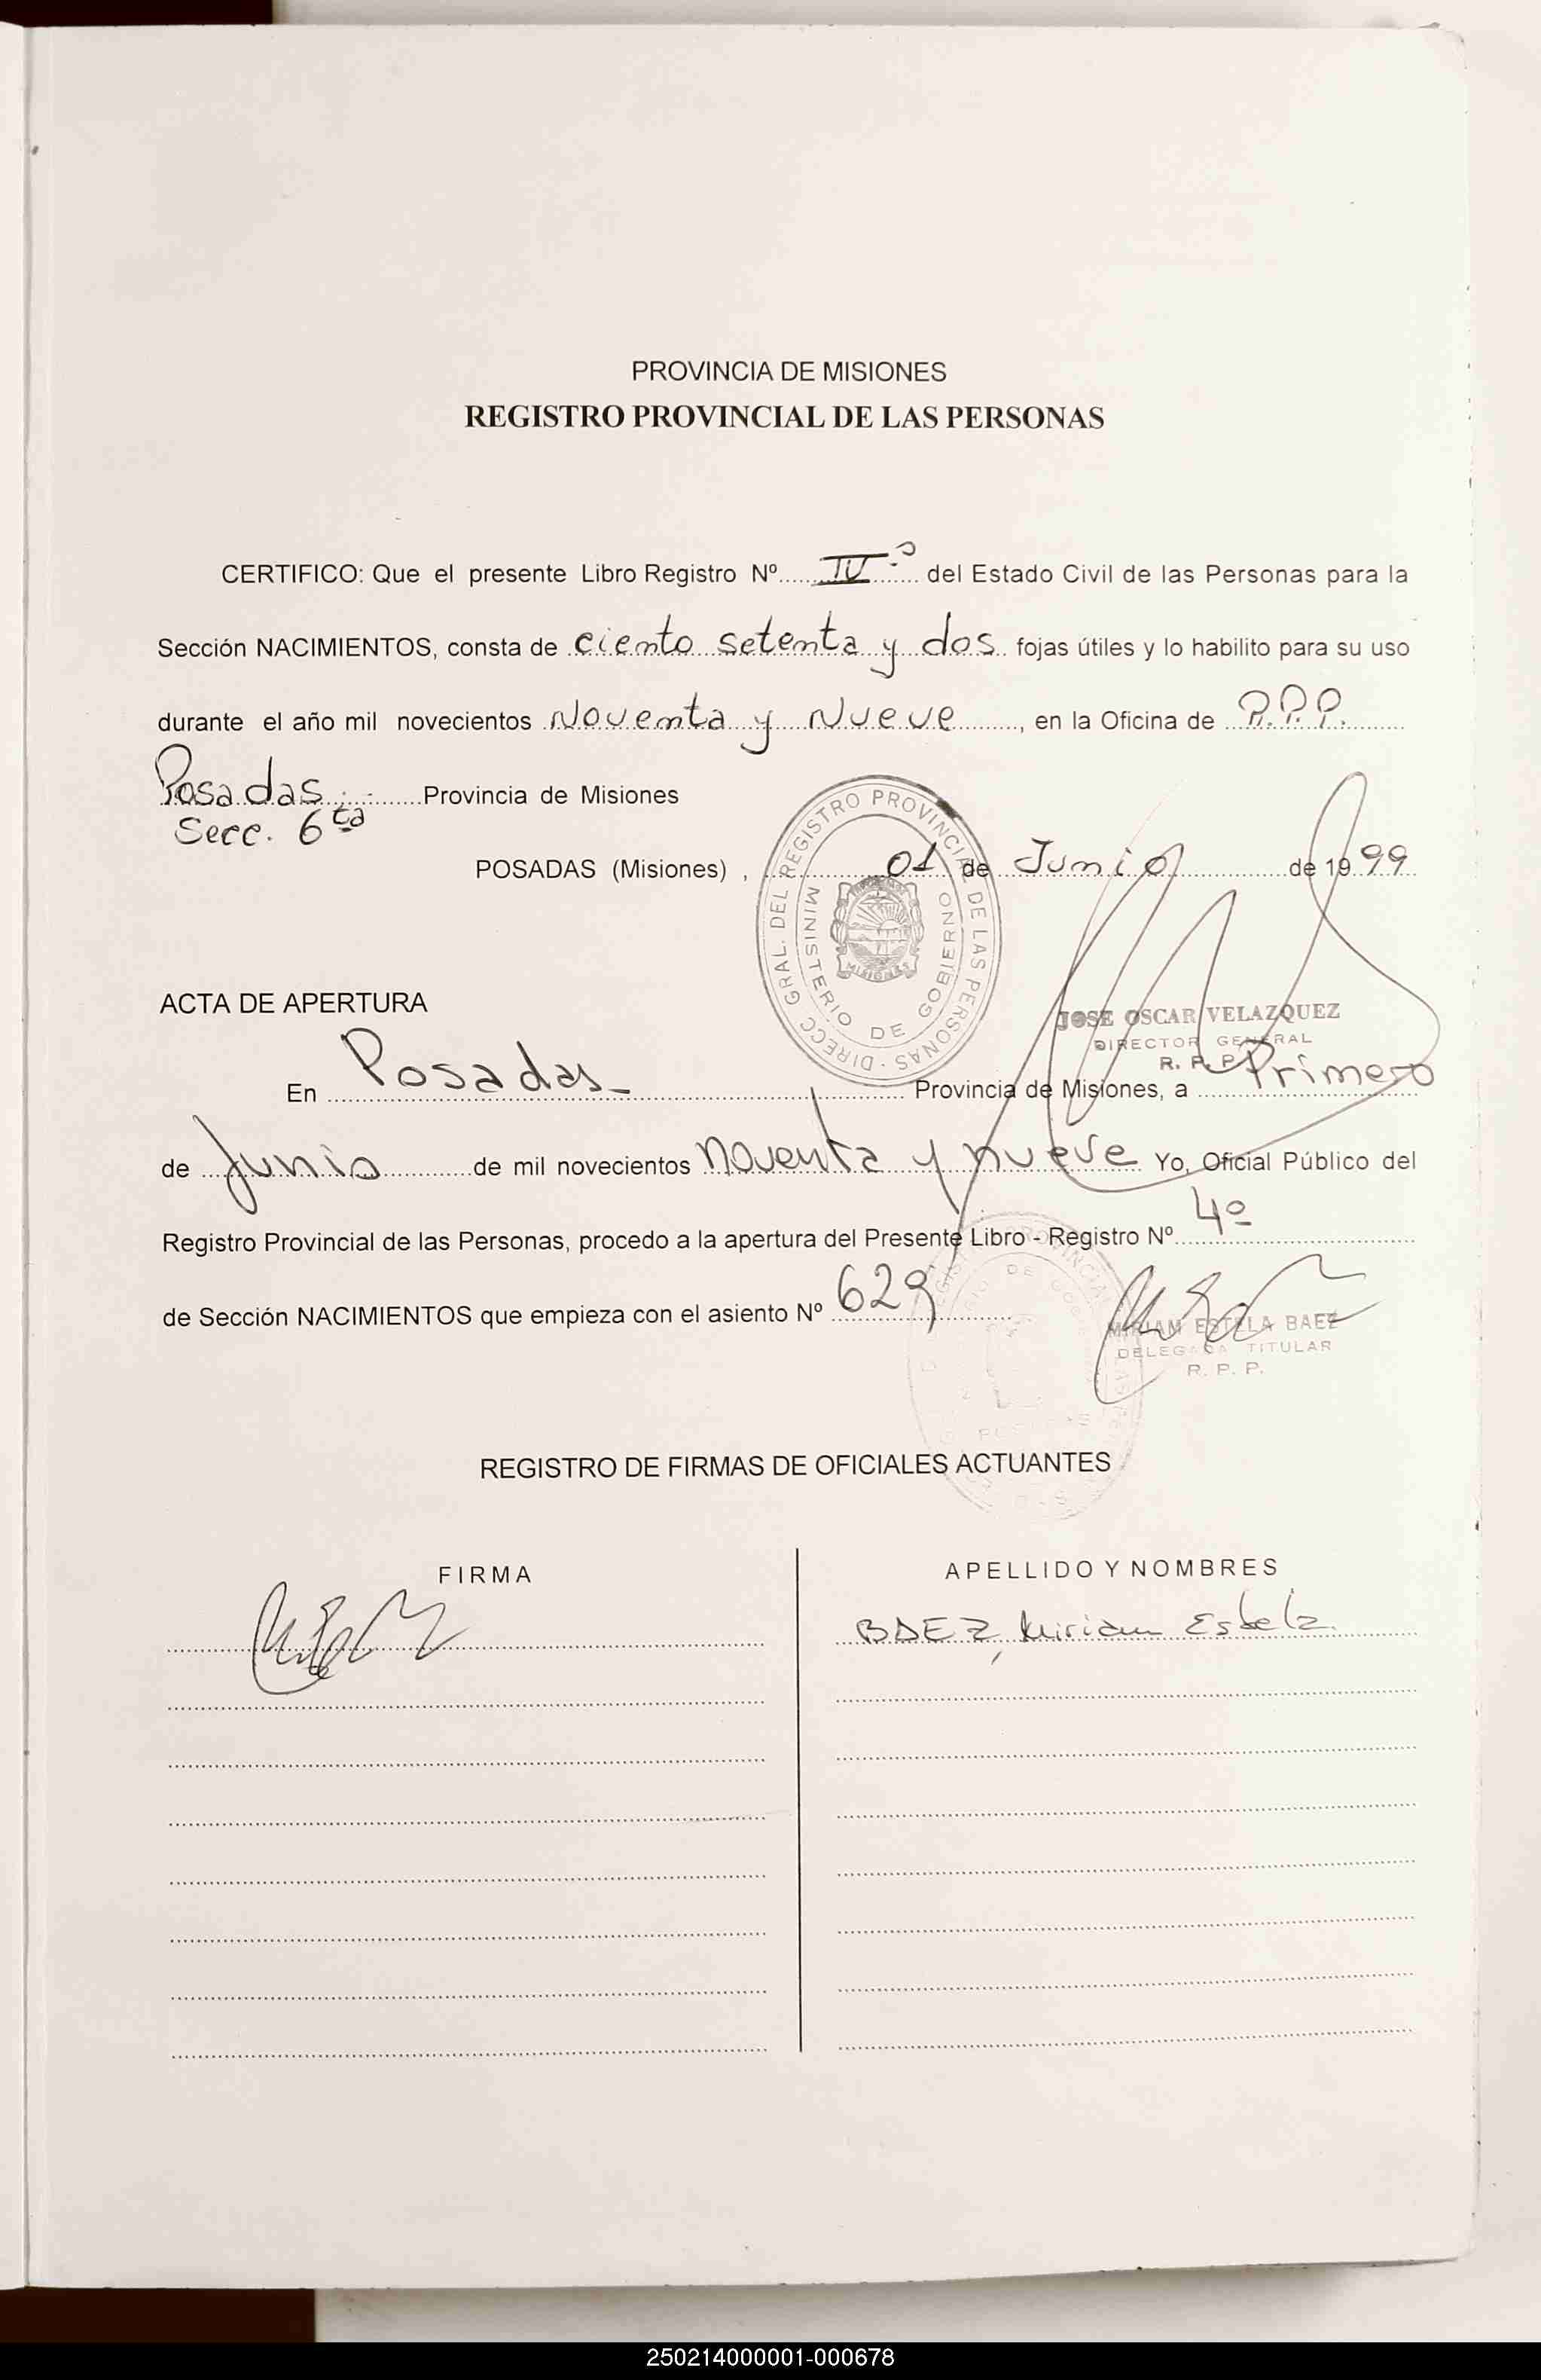 PROVINCIA DE MISIONES
REGISTRO PROVINCIAL DE LAS PERSONAS
CERTIFICO: Que el presente Libro Registro Nº IVº del Estado Civil de las Personas para la
Sección NACIMIENTOS, consta de ciento setenta y dos fojas útiles y lo habilito para su uso
durante el año mil novecientos Noventa y Nueve, en la Oficina de R.P.P.
Posadas.- Provincia de Misiones
Secc. 6ta
POSADAS (Misiones), 01 de Junio de 1999
DIRECC GRAL. DEL REGISTRO PROVINCIAL DE LAS PERSONAS
MINISTERIO DE GOBIERNO
MISIONES
JOSE OSCAR VELAZQUEZ
DIRECTOR GENERAL
R. P. P.
ACTA DE APERTURA
En Posadas Provincia de Misiones, a Primero
de Junio de mil novecientos noventa y nueve Yo, Oficial Público del
Registro Provincial de las Personas, procedo a la apertura del Presente Libro - Registro Nº 4º
de Sección NACIMIENTOS que empieza con el asiento Nº 629
MIRIAM ESTELA BAEZ
DELEGADA TITULAR
R. P. P.
REGISTRO DE FIRMAS DE OFICIALES ACTUANTES
FIRMA
APELLIDO Y NOMBRES
BAEZ, Miriam Estela
250214000001-000678